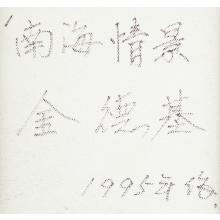 南海情景
金德基
1995年